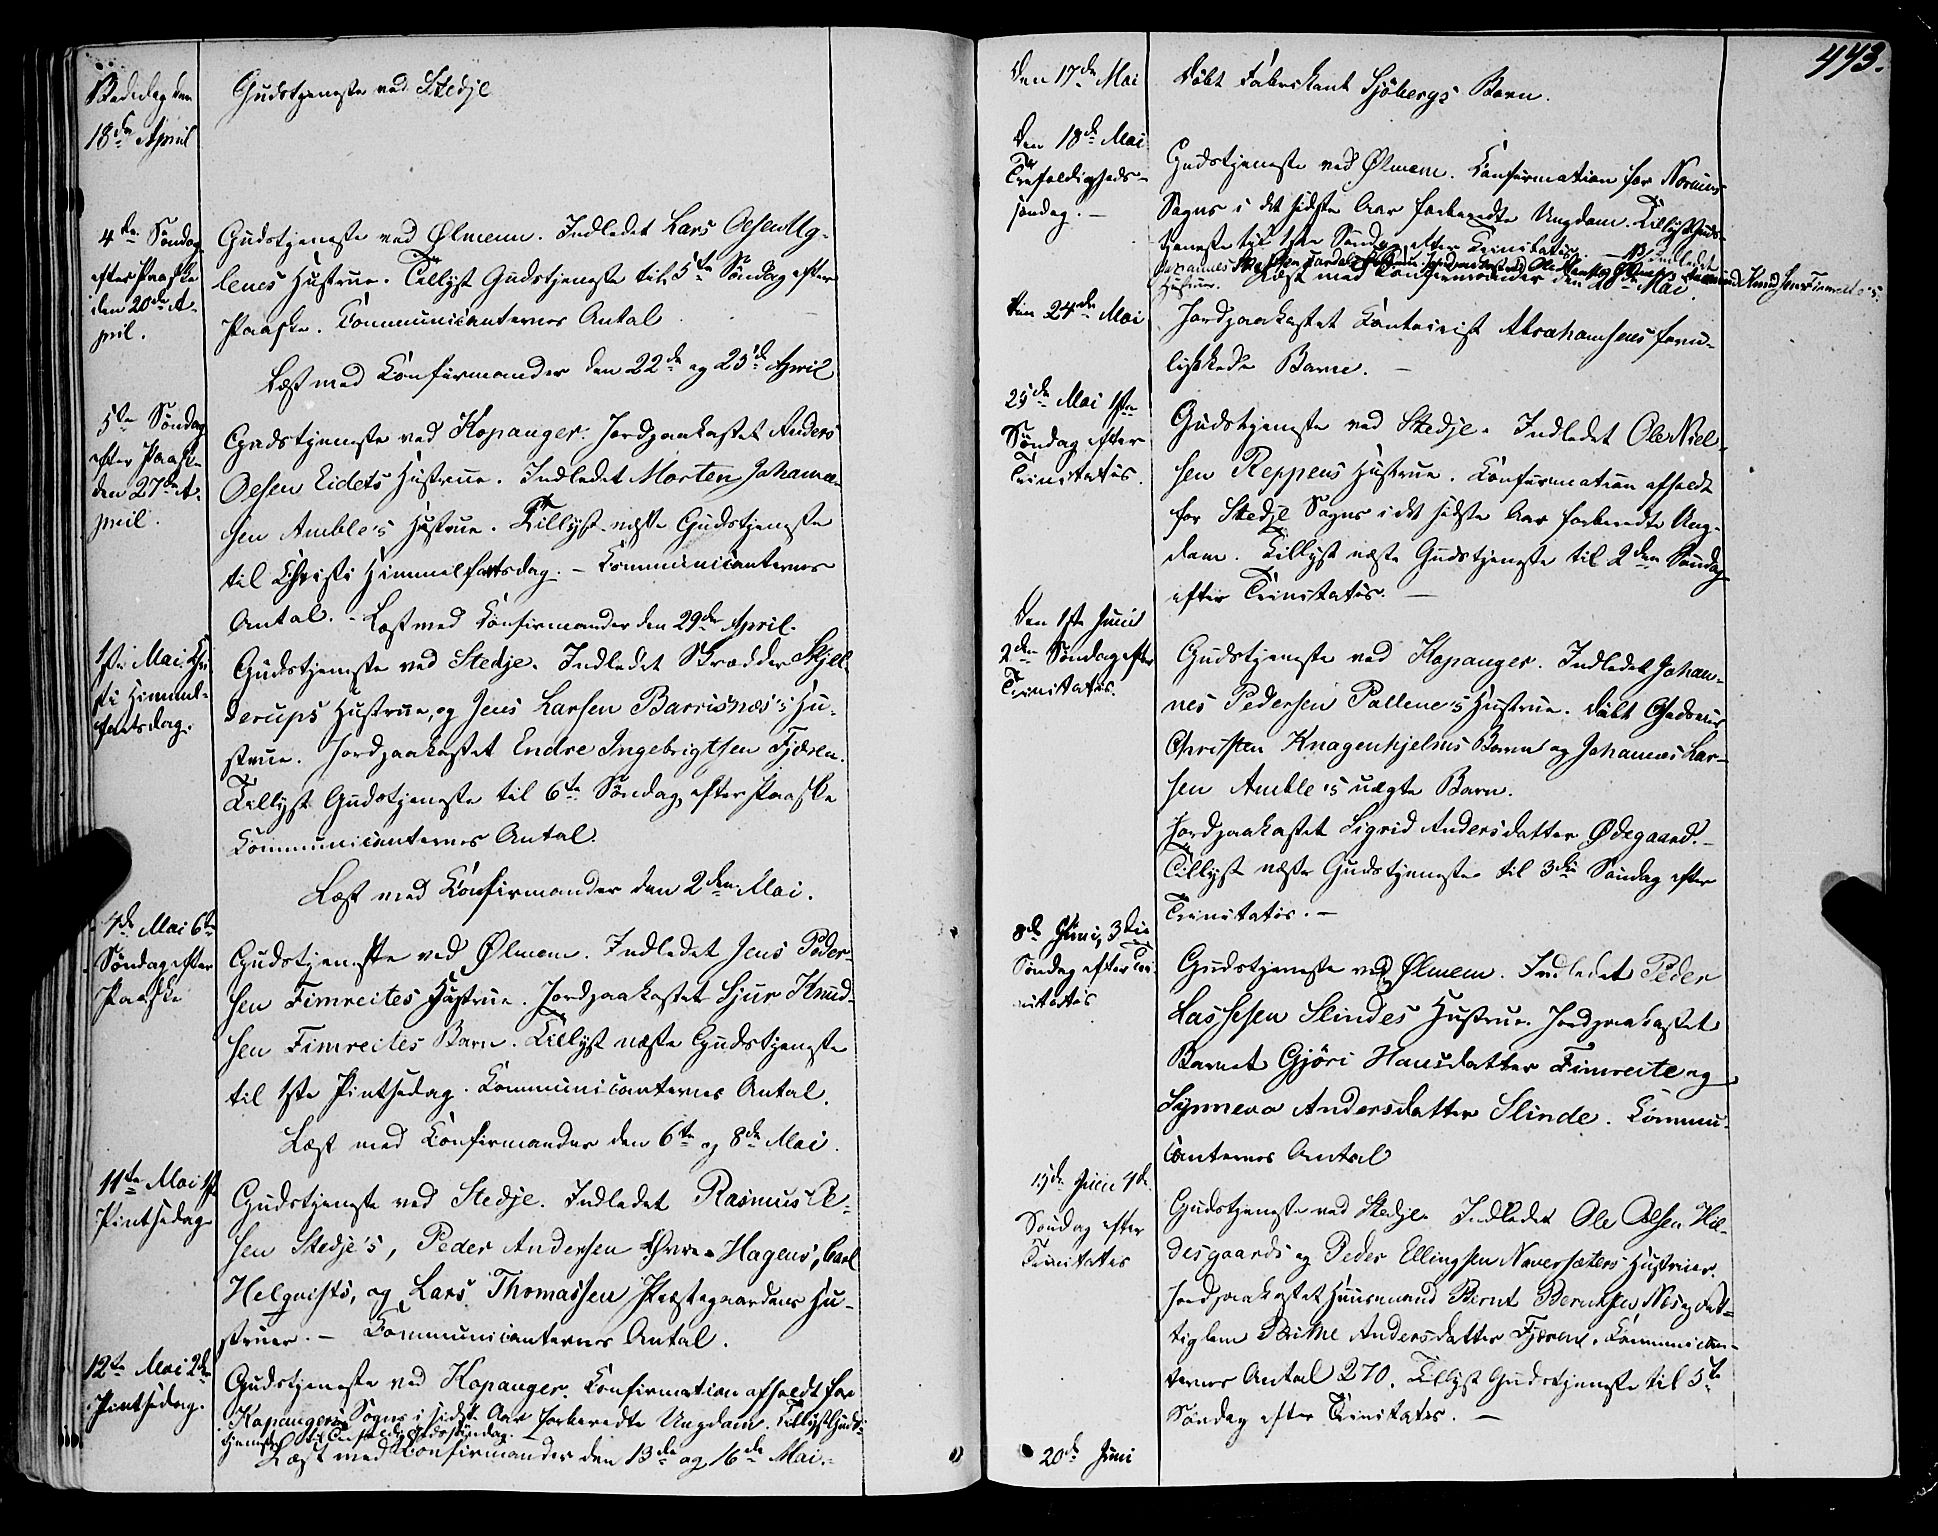 Bededag den
18de April
Gudstjeneste ved Stedje
4de Søndag
efter Paaske
den 20de A-
pril.
Gudstjeneste ved Ølmem. Indledet Lars Olsen Ug-
lenes Hustrue. Tillyst Gudstjeneste til 5te Søndag efter
Paaske. Communicanternes Antal
Læst med Confirmander den 22de og 25de April
5te Søndag
efter Paaske
den 27de A-
pril.
Gudstjeneste ved Kopanger. Jordpaakastet Anders
Olsen Eidets Hustrue. Indledet Morten Johanne-
sen Amble's Hustrue. Tillyst næste Gudstjeneste
til Christi Himmelfartsdag. - Communicanternes
Antal. - Læst med Confirmander den 29de April.
1ste Mai Chri-
sti Himmel-
fartsdag.
Gudstjeneste ved Stedje. Indledet Skrædder Skjel-
derups Hustrue, og Jens Larsen Barsnæs's Hu-
strue. Jordpaakastet Endre Ingebrigtsen Fjæren.
Tillyst Gudstjeneste til 6te Søndag efter Paaske
Communicanternes Antal.
Læst med Confirmander den 2den Mai.
4de Mai 6te
Søndag efter
Paaske
Gudstjeneste ved Ølmem. Indledet Jens Peder-
sen Fimreites Hustrue. Jordpaakastet Sjur Knud-
sen Fimreites Barn. Tillyst næste Gudstjeneste
til 1ste Pintsedag. Communicanternes Antal.
Læst med Confirmander den 6te og 8de Mai.
11te Mai 1ste
Pintsedag
Gudstjeneste ved Stedje. Indledet Rasmus Ol-
sen Stedje's, Peder Andersen Hagens, Carl
Helqvists, og Lars Thomassen Præstegaardens Hu-
struer. - Communicanternes Antal.
12te Mai 2den
Pintsedag.
Gudstjeneste ved Kopanger. Confirmation afholdt for
Kopangers Sogns i sidste Aar forberedte Ungdom. Tillyst Guds-
tjeneste til Trefoldighedssøndag.
Læst med Confirmander den 13de og 16de Mai.
443.
Den 17de Mai
Døbt Fabrikant Sjöbergs Barn.
Den 18de Mai
Trefoldigheds-
søndag. -
Gudstjeneste ved Ølmem. Confirmation for Norums
Sogns i det sidste Aar forberedte Ungdom. Tillyst Guds-
tjeneste til 1ste Søndag efter Trinitatis. - Indledet
Johannes
Hustruer. Læst med Confirmander den 20de Mai.
Den 24de Mai
Jordpaakastet Contorist Abrahamsens foru-
lykkede Barn. -
25de Mai 1ste
Søndag efter
Trinitatis.
Gudstjeneste ved Stedje. Indledet Ole Niel-
sen Reppens Hustrue. Confirmation afholdt
for Stedje Sogns i det sidste Aar forberedte Ung-
dom. Tillyst næste Gudstjeneste til 2den Søndag
efter Trinitatis. -
Den 1ste Juni
2den Søndag efter
Trinitatis.
Gudstjeneste ved Kopanger. Indledet Johan-
nes Pedersen Pallene's Hustrue. Døbt
Christen Knagenhjelms Barn og Johannes Lar-
sen Amble's uægte Barn.
Jordpaakastet Sigrid Andersdatter Ødegaard. -
Tillyst næste Gudstjeneste til 3die Søndag efter
Trinitatis. -
8de Juni, 3die
Søndag efter Tri-
nitatis
Gudstjeneste ved Ølmem. Indledet Peder
Lassesen Slindes Hustrue. Jordpaakastet
Barnet Gjöri Hansdatter Fimreite og
Synneva Andersdatter Slinde. Commu-
canternes Antal
15de Juni 4de
Søndag efter
Trinitatis
Gudstjeneste ved Stedje. Indledet Ole Olsen Hil-
desgaards og Peder Ellingsen Navarsæters Hustruer.
Jordpaakastet Huusmand Bernt Berntsen Næs og Fat-
tiglem Brithe Andersdatter Fjæren. Communican-
ternes Antal 270. Tillyst Gudstjeneste til 5te
Søndag efter Trinitatis. -
20de Juni